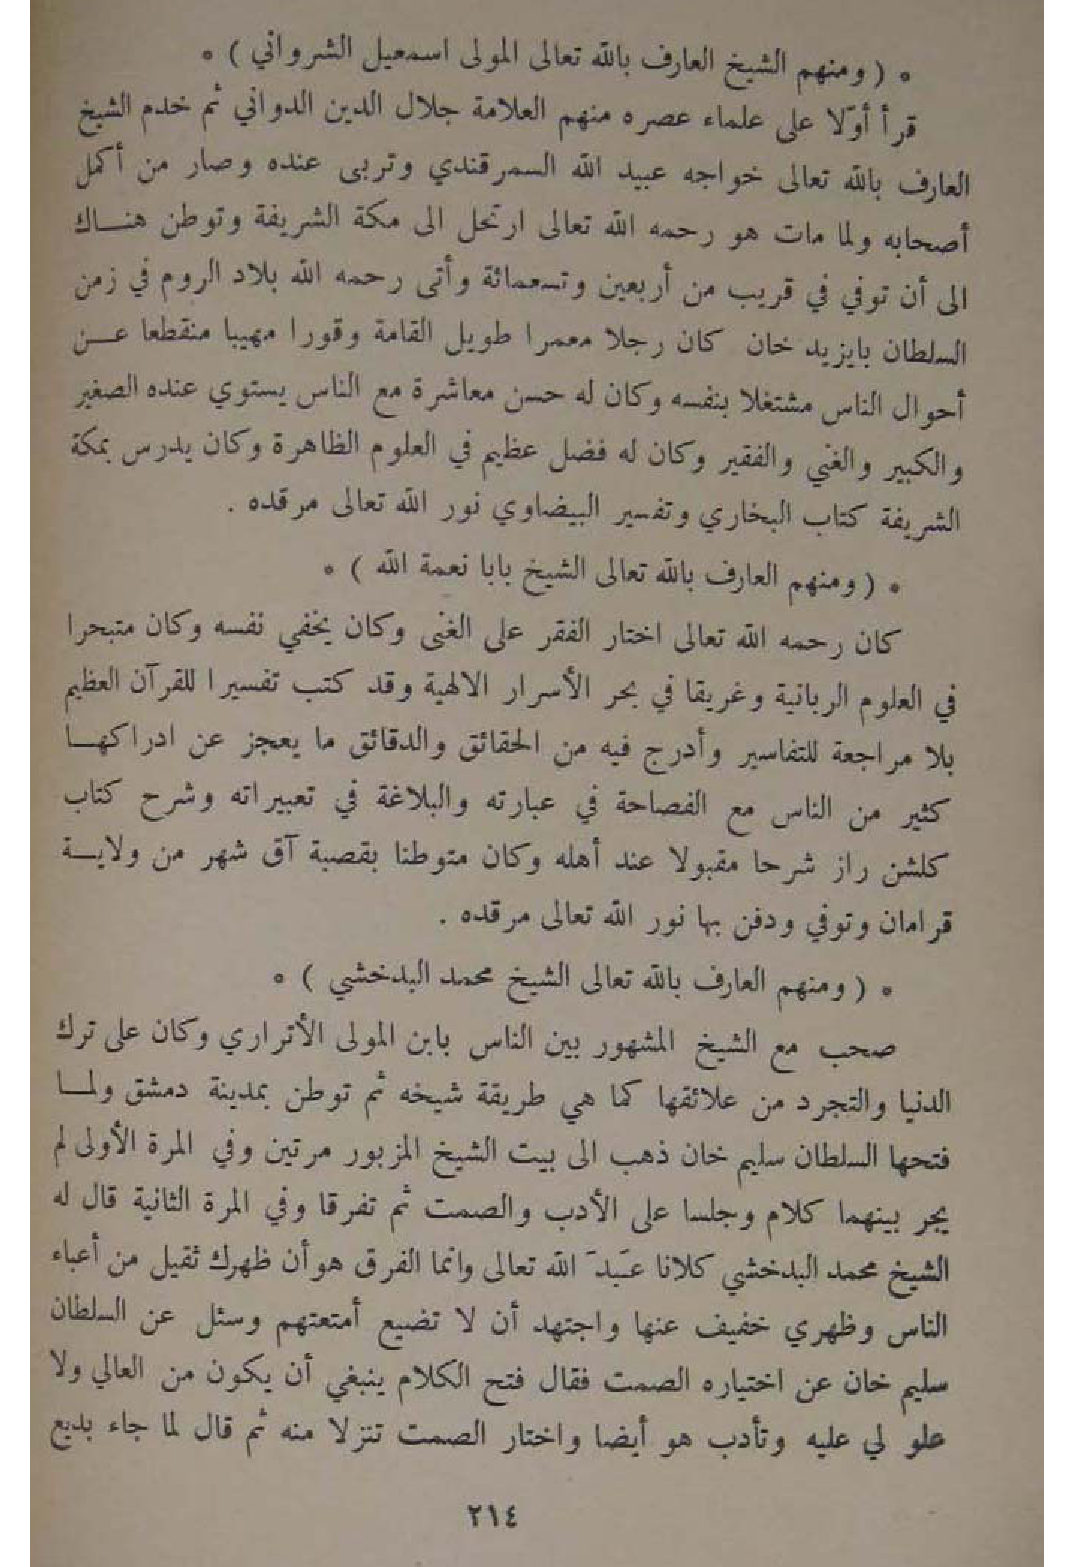 * ( ومنهم الشيخ العارف بالله تعالى المولى اسمعيل الشرواني ) *
قرأ أوّلا على علماء عصره منهم العلامة جلال الدين الدواني ثم خدم الشيخ
العارف بالله تعالى خواجه عبيد الله السمرقندي وتربى عنده وصار من أكمل
أصحابه ولما مات هو رحمه الله تعالى ارتحل الى مكة الشريفة وتوطن هنـــاك
الى أن توفي في قريب من أربعين وتسعمائة وأتى رحمه الله بلاد الروم في زمن
السلطان بايزيد خان كان رجلا معمرا طويل القامة وقورا مهيبا منقطعا عـــن
أحوال الناس مشتغلا بنفسه وكان له حسن معاشرة مع الناس يستوي عنده الصغير
والكبير والغني والفقير وكان له فضل عظيم في العلوم الظاهرة وكان يدرس بمكة
الشريفة كتاب البخاري وتفسير البيضاوي نور الله تعالى مرقده .
* ( ومنهم العارف بالله تعالى الشيخ بابا نعمة الله ) *
كان رحمه الله تعالى اختار الفقر على الغنى وكان يخفي نفسه وكان متبحرا
في العلوم الربانية وغريقا في بحر الأسرار الالهية وقد كتب تفسيرا للقرآن العظيم
بلا مراجعة للتفاسير وأدرج فيه من الحقائق والدقائق ما يعجز عن ادراكهـــا
كثير من الناس مع الفصاحة في عبارته والبلاغة في تعبيراته وشرح كتاب
كلشن راز شرحا مقبولا عند أهله وكان متوطنا بقصبة آق شهر من ولايـــة
قرامان وتوفي ودفن بها نور الله تعالى مرقده .
* ( ومنهم العارف بالله تعالى الشيخ محمد البدخشي ) *
صحب مع الشيخ المشهور بين الناس بابن المولى الأتراري وكان على ترك
الدنيا والتجرد من علائقها كما هي طريقة شيخه ثم توطن بمدينة دمشق ولمـــا
فتحها السلطان سليم خان ذهب الى بيت الشيخ المزبور مرتين وفي المرة الأولى لم
يجر بينهما كلام وجلسا على الأدب والصمت ثم تفرقا وفي المرة الثانية قال له
الشيخ محمد البدخشي كلانا عَبدَ الله تعالى وانما الفرق هو أن ظهرك ثقيل من أعباء
الناس وظهري خفيف عنها واجتهد أن لا تضيع أمتعتهم وسئل عن السلطان
سليم خان عن اختياره الصمت فقال فتح الكلام ينبغي أن يكون من العالي ولا
علو لي عليه وتأدب هو أيضا واختار الصمت تنزلا منه ثم قال لما جاء بديع
٢١٤